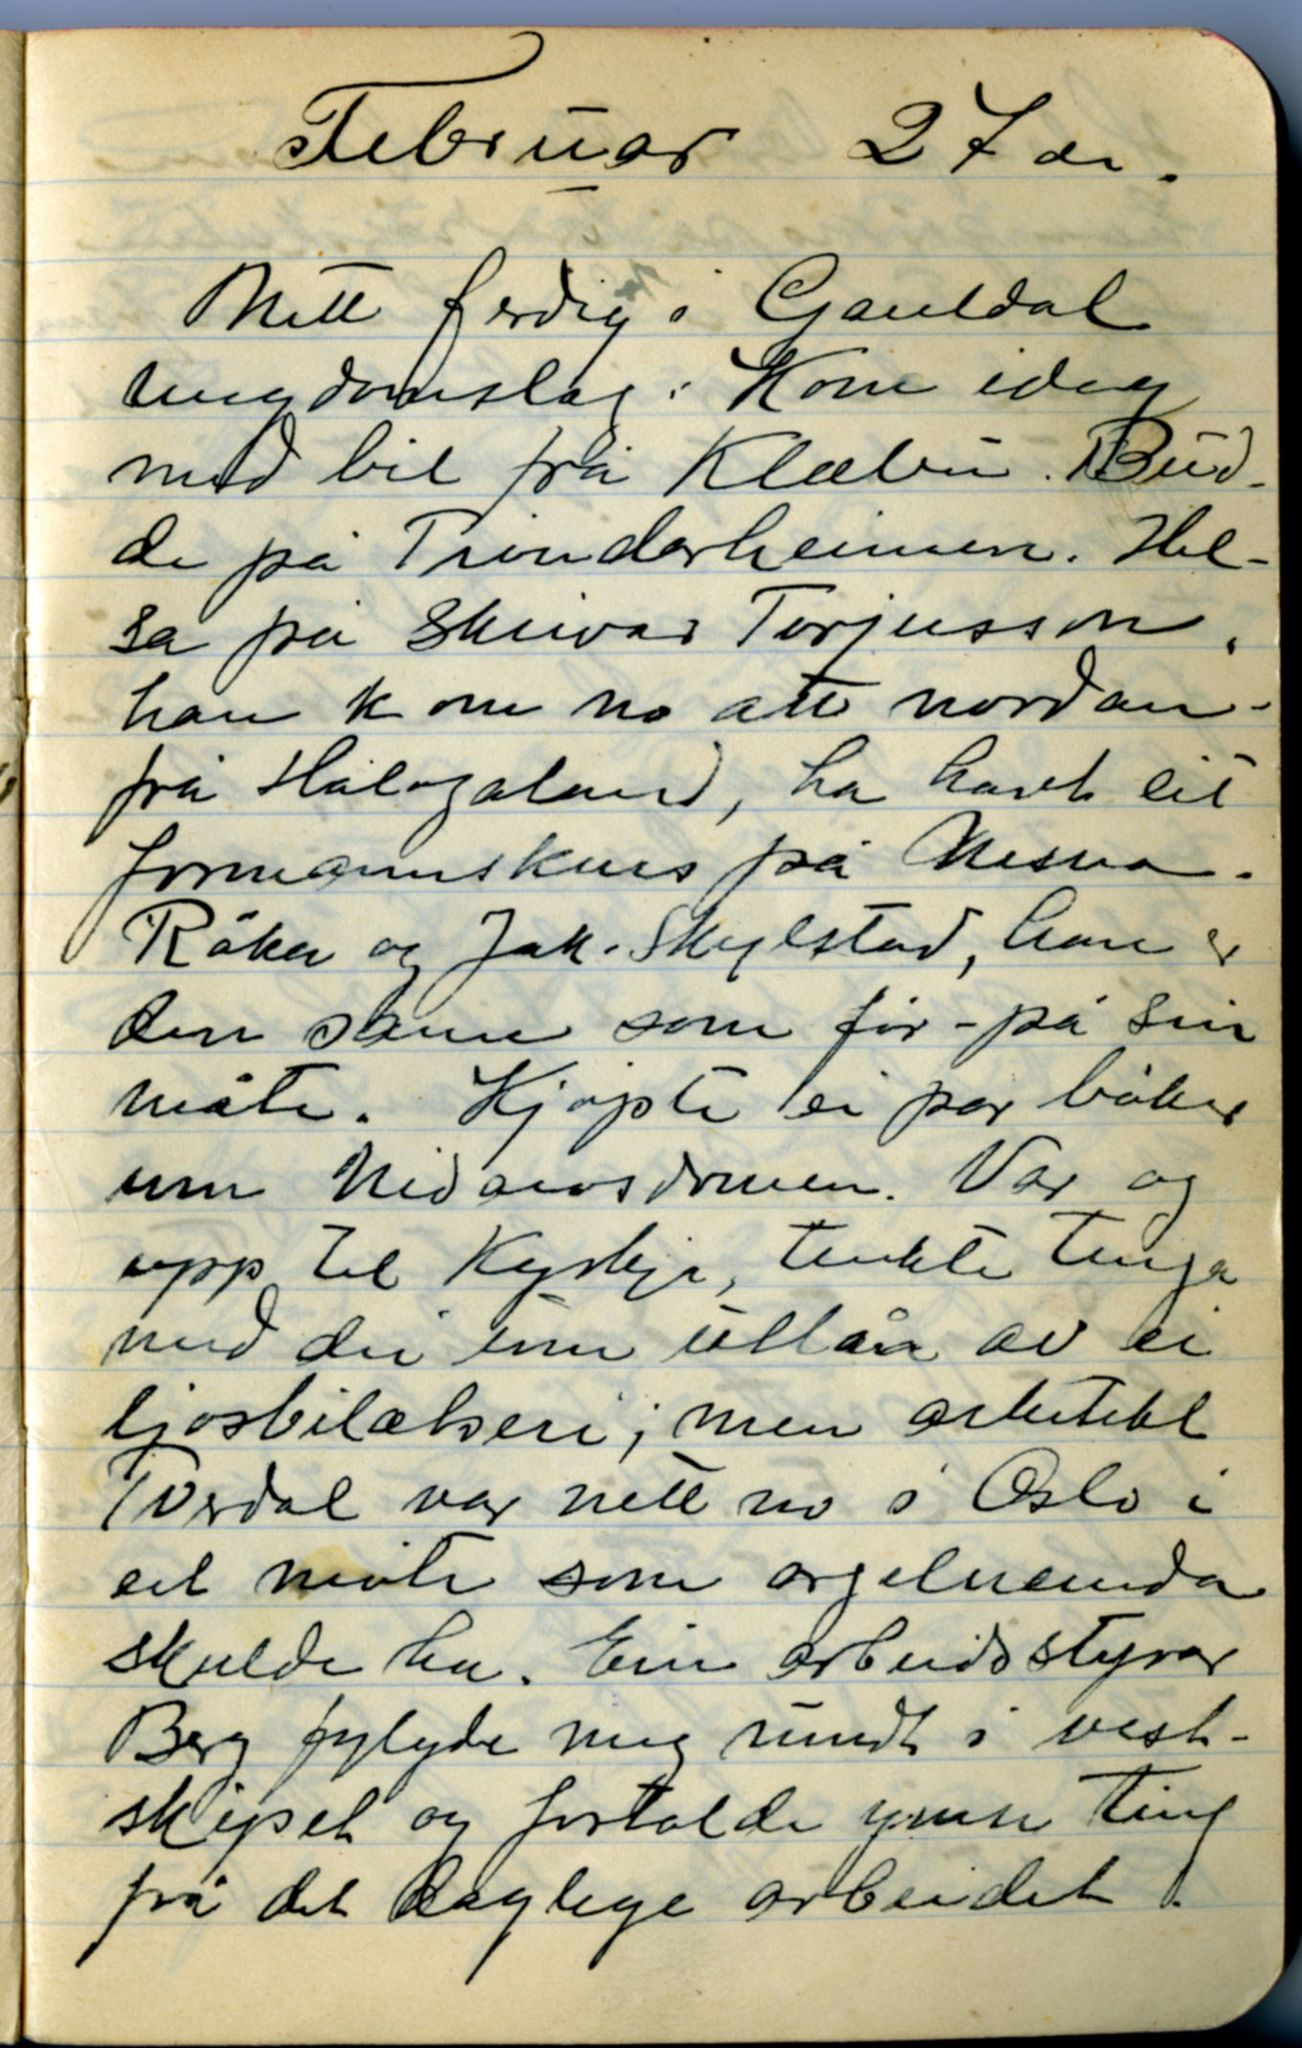 Februar 27de.
Nett ferdig i Gauldal
ungdomslag. Kom idag
med bil frå Klæbu. Bud-
de på Trønderheimen. Hel-
sa på Skrivar Torjusson,
han kom no att nordan-
frå Hålogaland, ha havt eit
formannskurs på Nesna.
Råka og Jak. Skylstad, han er
den same som før - på sin
måte. Kjøpte ei par bøker
um Nidarosdomen. Var og
upp til Kyrkja, tenkte tinga
med dei um utlån av ei
ljosbilætseri; men arkitekt
Tverdal var nett no i Oslo i
eit møte som orgelnemda
skulde ha. Ein arbeidsstyrar
Berg fylgde meg rundt i vest-
skipet og fortalde ymse ting
frå det daglege arbeidet.